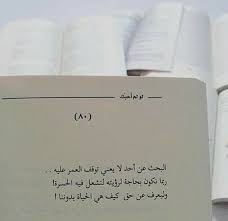 لو لم أحبك
(٨٠)
البحث عن أحد لا يعني توقف العمر عليه . .
ربما نكون بحاجة لرؤيته لنشعل فيه الحسرة!
وليعرف عن حق كيف هي الحياة بدوننا !